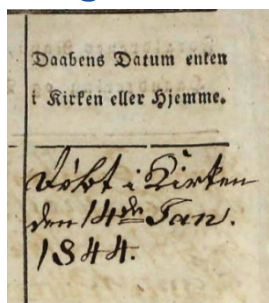 Daabens Datum enten
i Kirken eller Hjemme.
Döbt i Kirken
den 14de Jan.
1844.